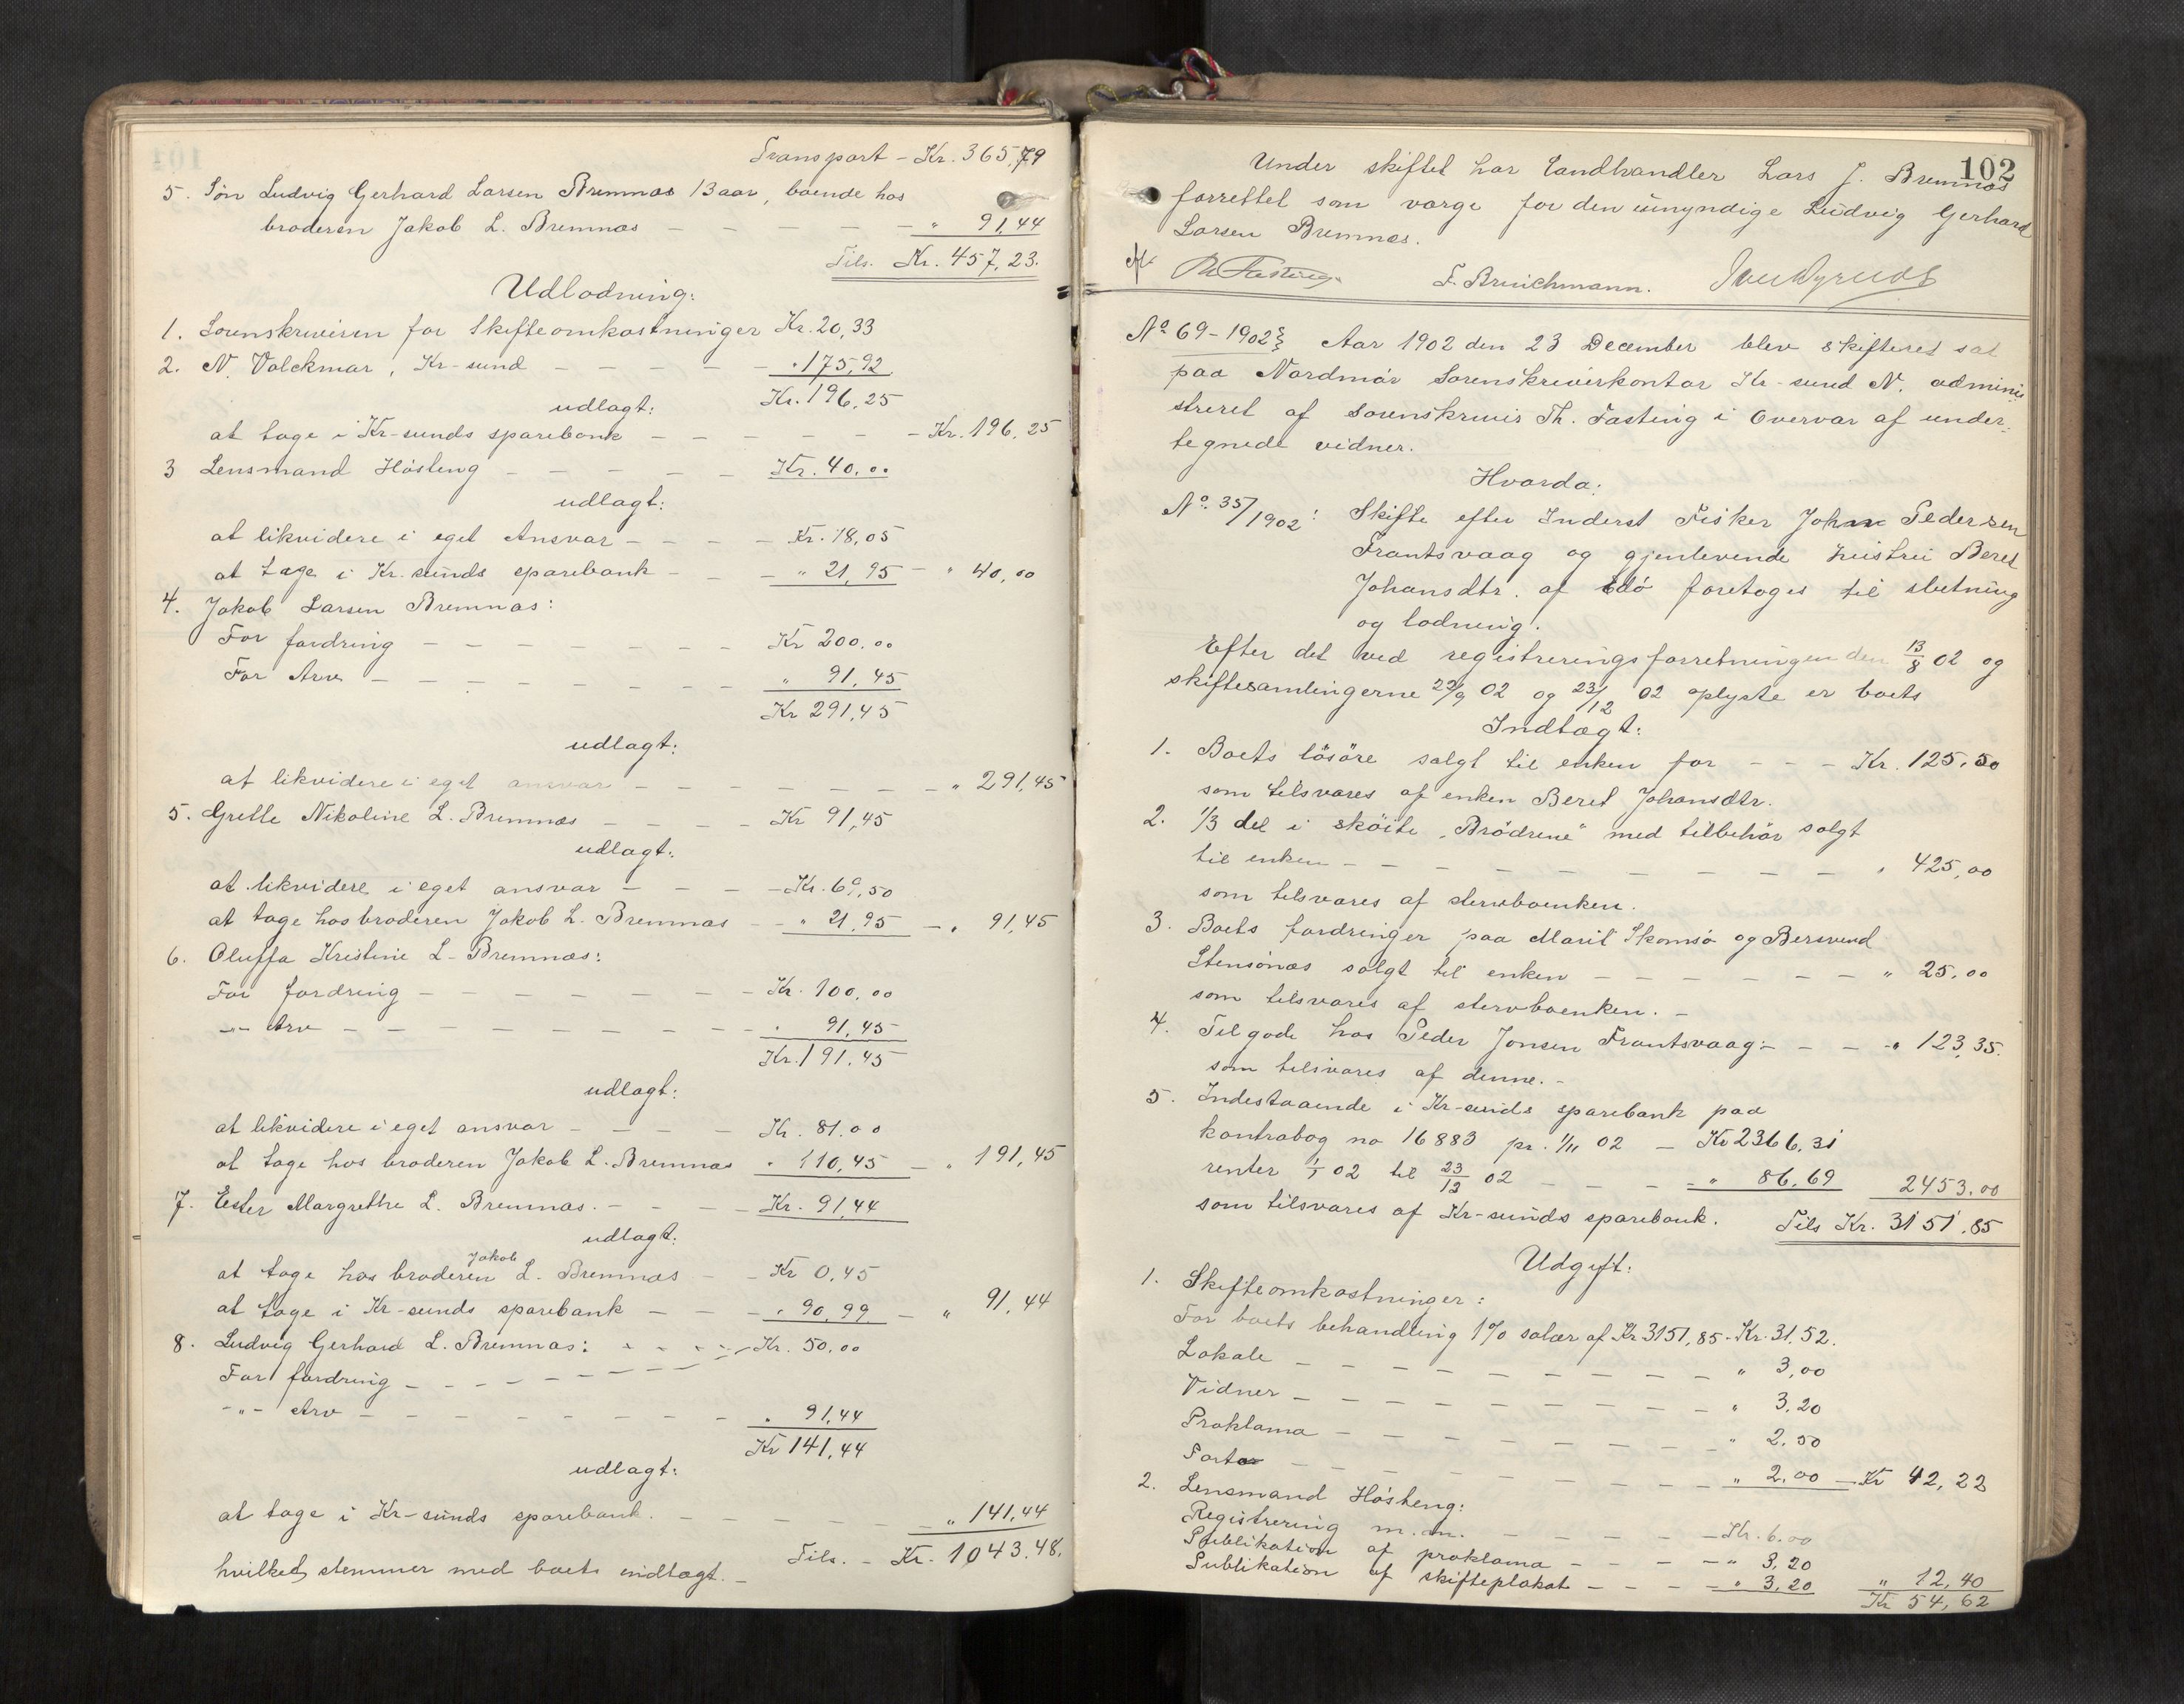 Transport - Kr. 365,79
5. Søn Ludvig Gerhard Larsen Bremnæs 13 aar, boende hos
broderen Jakob L. Bremnæs - - - - - " 91,44
Tils. Kr. 457,23.
Udlodning:
1. Sorenskriveren for Skifteomkostninger Kr. 20,33
2. N. Volckmar, Kr-sund - - - - - " 175,92
Kr. 196,25
udlagt:
at tage i Kr-sunds sparebank - - - - - - Kr. 196,25
3 Lensmand Høsteng - - - - - Kr. 40,00
udlagt:
at likvidere i eget Ansvar - - - - Kr. 18,05
at tage i Kr. sunds sparebank - - - " 21,95 - " 40,00
4. Jakob Larsen Bremnæs:
For fordring - - - - - - - Kr 200,00
For Arv - - - - - - - - " 91,45
Kr 291,45
udlagt:
at likvidere i eget ansvar - - - - - - - " 291,45
5. Grethe Nikoline L. Bremnæs - - - - Kr 91,45
udlagt:
at likvidere i eget ansvar - - - - Kr. 69,50
at tage hos broderen Jakob L. Bremnæs - - " 21,95 - " 91,45
6. Oluffa Kristine L. Bremnæs:
For fordring - - - - - - - Kr. 100,00
-"- Arv - - - - - - - - - " 91,45
Kr. 191,45
udlagt:
at likvidere i eget ansvar - - - - Kr. 81.00
at tage hos broderen Jakob L. Bremnæs " 110,45 - " 191,45
7. Ester Margrethe L. Bremnæs. - - - - Kr. 91,44
udlagt.
at tage hos broderen Jakob L. Bremnæs - - Kr 0,45
at tage i Kr-sunds sparebank - - - " 90,99 - " 91,44
8. Ludvig Gerhard L. Bremnæs: - - - - Kr. 50,00
For fordring - - - - - - - -
-"- Arv - - - - - - - - " 91,44
Kr 141,44
udlagt:
at tage i Kr-sunds sparebank. - - - - - - " 141,44
Tils. - Kr. 1043.48.
hvilket stemmer med boets indtægt. -
102
Under skiftet har Landhandler Lars J. Bremnæs
forrettet som værge for den umyndige Ludvig Gerhard
Larsen Bremnæs.
Th Fasting. F. Brinchmann.
No 69-1902 } Aar 1902 den 23 December blev skifteret sat
paa Nordmør Sorenskriverkontor Kr-sund N. admini
streret af Sorenskriver Th. Fasting i Overvær af under-
tegnede vidner.
Hvorda:
No. 35/1902: Skifte efter Inderst Fisker Johan Pedersen
Frantsvaag og gjenlevende hustru Beret
Johansdtr. af Edø foretoges til slutning
og lodning.
Efter det ved registreringsforretningen den 13/8 02 og
skiftesamlingerne 29/9 02 og 23/12 02 oplyste er boets
Indtægt:
1. Boets løsøre solgt til enken for - - - Kr. 125.50
som tilsvares af enken Beret Johansdtr.
2. 1/3 del i skøite "Brødrene" med tilbehør solgt
til enken - - - - - - - - - - " 425,00
som tilsvares af stervboenken.
3. Boets fordringer paa Marit Skomsø og Bersvend
Stensønæs solgt til enken - - - - - - - " 25.00
som tilsvares af stervboenken. -
4. Tilgode hos Peder Jonsen Frantsvaag: - - - - " 123,35.
som tilsvares af denne. -
5. Indestaaende i Kr-sunds sparebank paa
kontrabog no 16883 pr. 1/11 02 - Kr 2366,31
renter 1/1 02 til 23/12 02 - - - - " 86,69 2453.00
som tilsvares af Kr-sunds sparebank. Tils Kr. 3151.85
Udgift:
1. Skifteomkostninger:
For boets behandling 1% salær af Kr 3151,85 - Kr. 31,52.
Lokale - - - - - - - - - " 3,00
Vidner - - - - - - - - - " 3,20
Proklama - - - - - - - - " 2,50
Porto - - - - - - - - - " 2,00 - Kr 42,22
2. Lensmand Høsteng:
Registrering m.m. - - - - - - Kr. 6.00
Publikation af proklama - - - - - " 3,20
Publikation af skifteplakat - - - - " 3,20 " 12,40
Kr 54,62